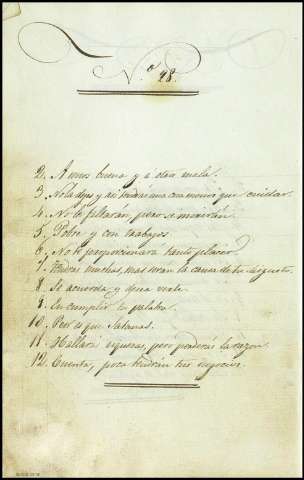 N.º 28.
2. A unos buena y a otra mala.
3. No la dejes y asi tendrás una con menos que cuidar.
4. No te faltarán pero se morirán.
5. Pobre y con trabajos.
6. No te proporcionará tanto placer.
7. Tendras muchas, mas seran la causa de tu disgusto.
8. Se acuerda y desea verte.
9. En cumplir tu palabra.
10. Peor es que Satanas.
11. Hallará riquezas, pero perderás la razon.
12. Cuenta, poca tendrán tus negocios.